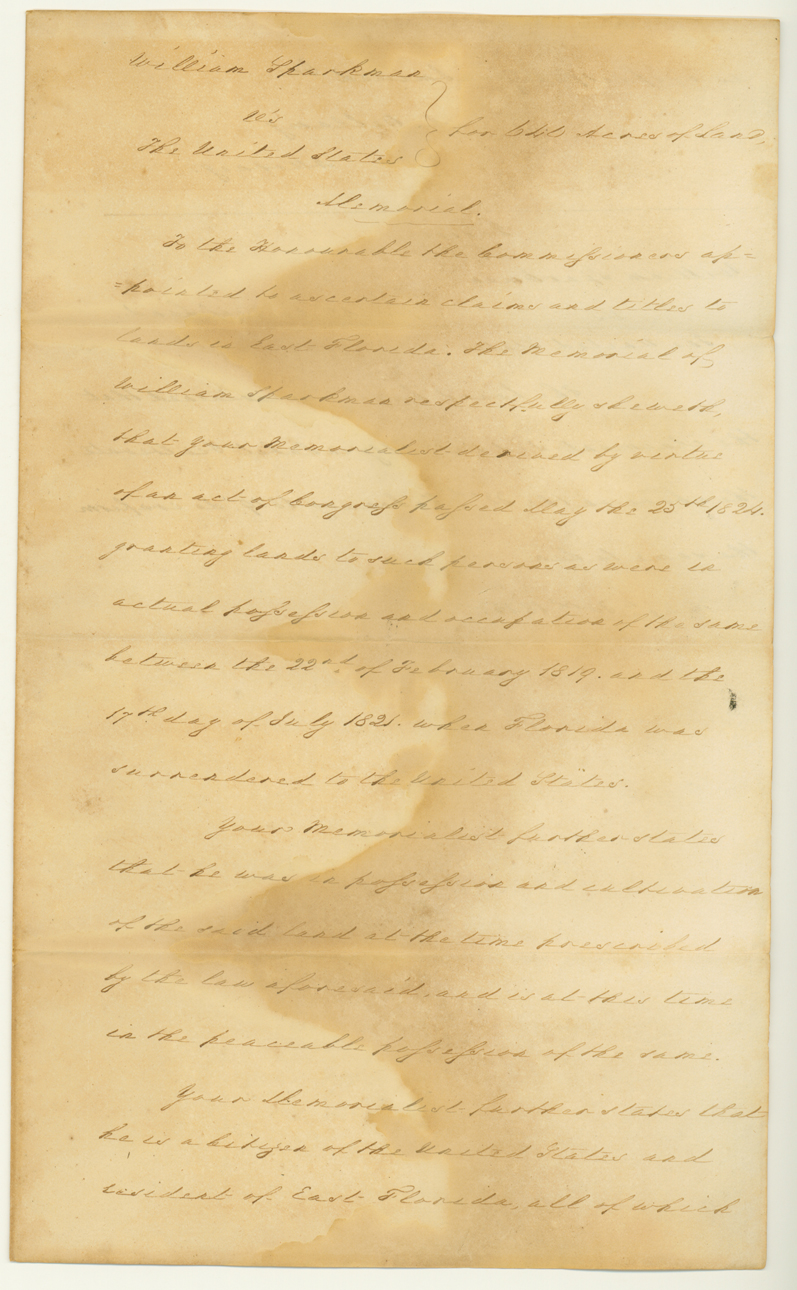 William Sparkman
vs
The United States } for 640 Acres of Land,
Memorial.
To the Honourable the Commissioners ap=
=pointed to ascertain claims and titles to
lands in East Florida. The Memorial of,
William Sparkman respectfully sheweth,
that your Memorialist derived by virtue
of an act of Congress passed May the 25th 1824.
granting lands to such persons as were in
actual possession and occupation of the same
between the 22nd of February 1819. and the
17th day of July 1821. when Florida was
surrendered to the United States.
Your Memorialist further states
that he was in possession and cultivation
of the said land at the time prescribed
by the law aforesaid, and is at this time
in the peaceable possession of the same.
Your Memorialist further states that
he is a Citizen of the United States and
resident of East Florida, all of which